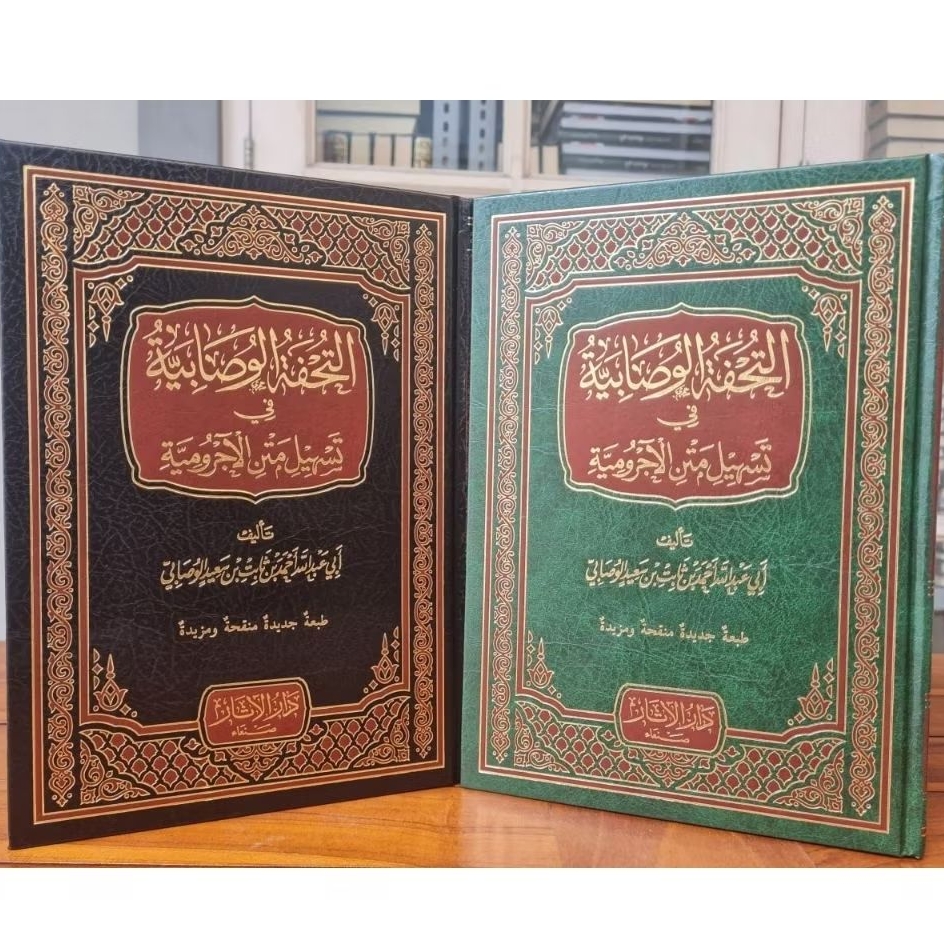 التُّحْفَةُ الوُصَابِيَّةُ
فِي
تَسْهِيْلِ مَتْنِ الآجُرُّومِيَّةِ
تَأليف
أبي عبد الله أحمد بن ثابت بن سعيد الوصابي
طبعةٌ جديدةٌ منقحةٌ ومزيدةٌ
دار الآثار
صنعاء
التُّحْفَةُ الوُصَابِيَّةُ
فِي
تَسْهِيْلِ مَتْنِ الآجُرُّومِيَّةِ
تَأليف
أبي عبد الله أحمد بن ثابت بن سعيد الوصابي
طبعةٌ جديدةٌ منقحةٌ ومزيدةٌ
دار الآثار
صنعاء